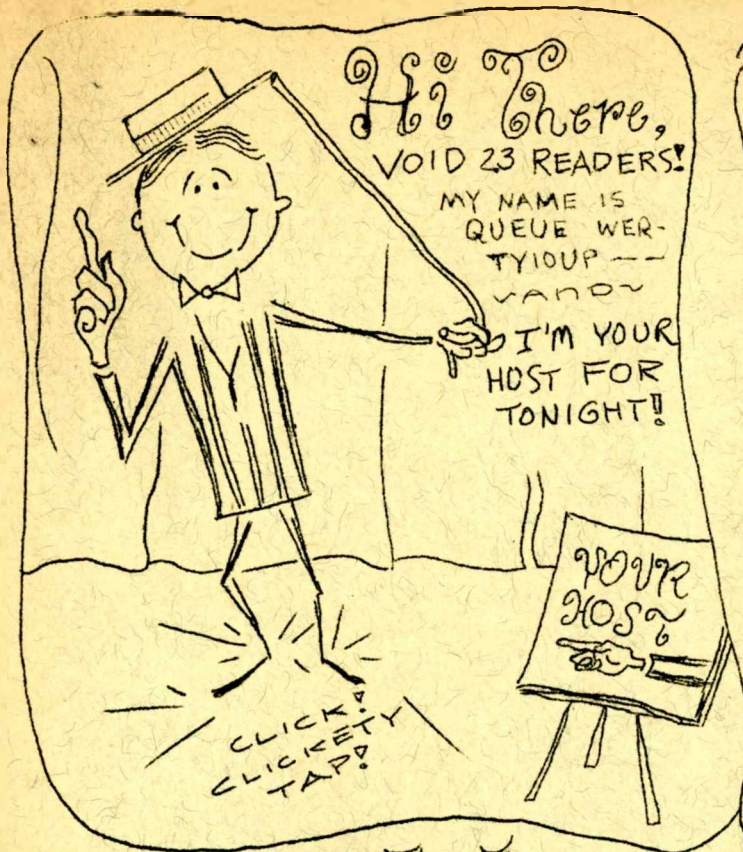 Hi There,
VOID 23 READERS!
MY NAME IS
QUEUE WER-
TYIOUP --
~AND~
I'M YOUR
HOST FOR
TONIGHT!!
YOUR
HOST
CLICK!
CLICKETY
TAP!